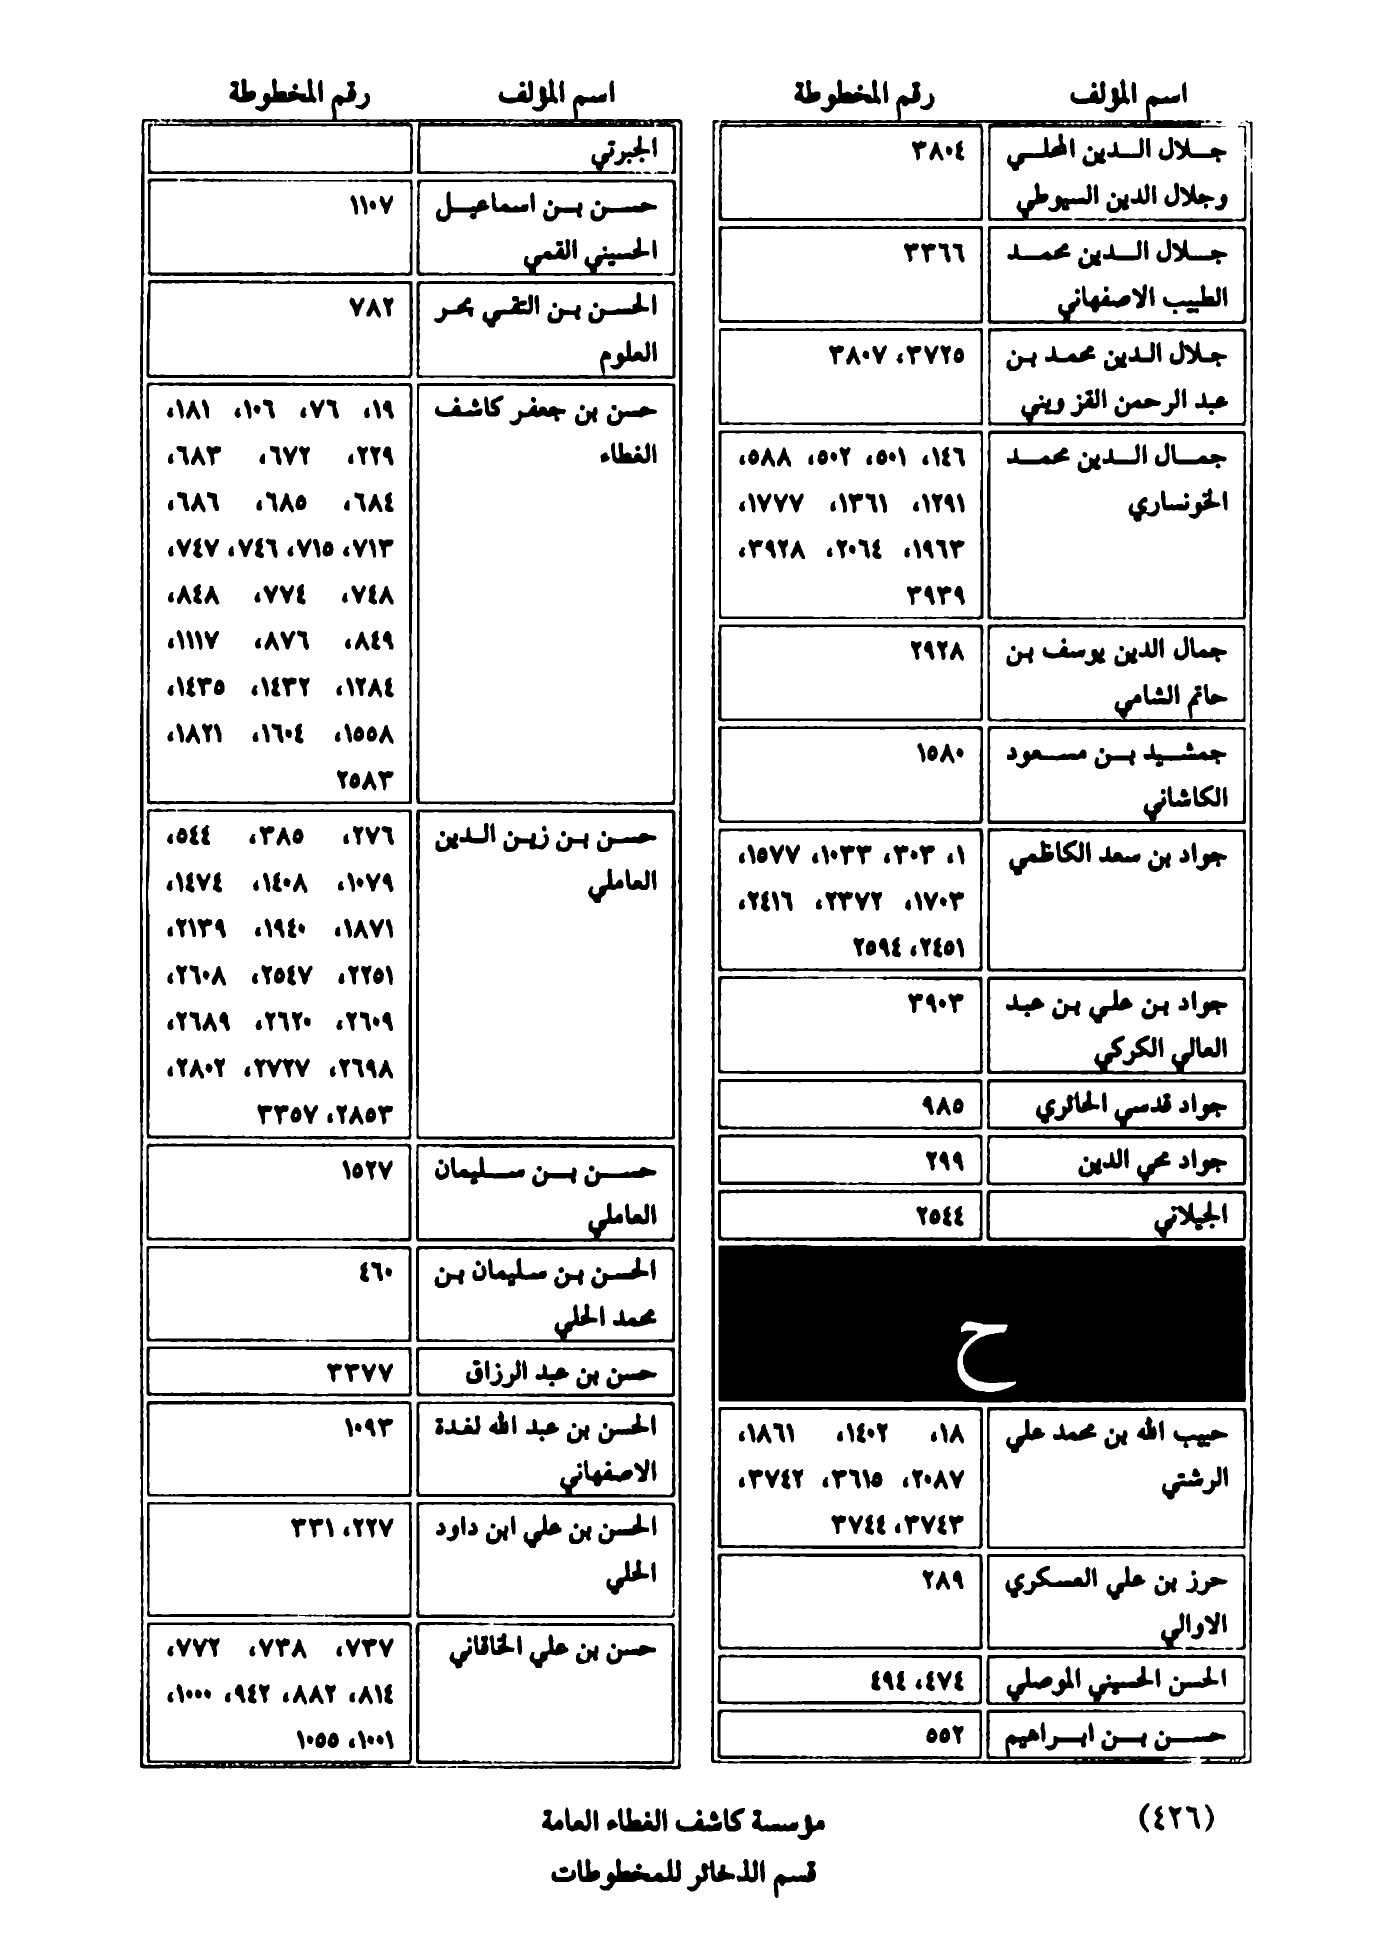 اسم المؤلف رقم المخطوطة
جلال الدين المحلي ٣٨٠٤
وجلال الدين السيوطي
جلال الدين محمد ٣٣٦٦
الطبيب الاصفهاني
جلال الدين محمد بن ٣٧٢٥، ٣٨٠٧
عبد الرحمن القزويني
جمال الدين محمد ١٤٦، ٥٠١، ٥٠٢، ٥٨٨،
الخونساري ١٢٩١، ١٣٦١، ١٧٧٧،
١٩٦٣، ٢٠٦٤، ٣٩٢٨،
٣٩٣٩
جمال الدين يوسف بن ٢٩٢٨
حاتم الشامي
جمشيد بن مسعود ١٥٨٠
الكاشاني
جواد بن سعد الكاظمي ١، ٣٠٣، ١٠٣٣، ١٥٧٧،
١٧٠٣، ٢٣٧٢، ٢٤١٦،
٢٤٥١، ٢٥٩٤
جواد بن علي بن عبد ٣٩٠٣
العالي الكركي
جواد قدسي الحائري ٩٨٥
جواد محي الدين ٢٩٩
الجيلاني ٢٥٤٤
ح
حبيب الله بن محمد علي ١٨، ١٤٠٢، ١٨٦١،
الرشتي ٢٠٨٧، ٣٦١٥، ٣٧٤٢،
٣٧٤٣، ٣٧٤٤
حرز بن علي العسكري ٢٨٩
الاوالي
الحسن الحسيني الموصلي ٤٧٤، ٤٩٤
حسن بن ابراهيم ٥٥٢
اسم المؤلف رقم المخطوطة
الجبرتي
حسن بن اسماعيل ١١٠٧
الحسيني القمي
الحسن بن التقي بحر ٧٨٢
العلوم
حسن بن جعفر كاشف ١٩، ٧٦، ١٠٦، ١٨١،
الغطاء ٢٢٩، ٦٧٢، ٦٨٣،
٦٨٤، ٦٨٥، ٦٨٦،
٧١٣، ٧١٥، ٧٤٦، ٧٤٧،
٧٤٨، ٧٧٤، ٨٤٨،
٨٤٩، ٨٧٦، ١١١٧،
١٢٨٤، ١٤٣٢، ١٤٣٥،
١٥٥٨، ١٦٠٤، ١٨٢١،
٢٥٨٣
حسن بن زين الدين ٢٧٦، ٣٨٥، ٥٤٤،
العاملي ١٠٧٩، ١٤٠٨، ١٤٧٤،
١٨٧١، ١٩٤٠، ٢١٣٩،
٢٢٥١، ٢٥٤٧، ٢٦٠٨،
٢٦٠٩، ٢٦٢٠، ٢٦٨٩،
٢٦٩٨، ٢٧٢٧، ٢٨٠٢،
٢٨٥٣، ٣٣٥٧
حسن بن سليمان ١٥٢٧
العاملي
الحسن بن سليمان بن ٤٦٠
محمد الحلي
حسن بن عبد الرزاق ٣٣٧٧
الحسن بن عبد الله لغدة ١٠٩٣
الاصفهاني
الحسن بن علي ابن داود ٢٢٧، ٣٣١
الحلي
حسن بن علي الخاقاني ٧٣٧، ٧٣٨، ٧٧٢،
٨١٤، ٨٨٢، ٩٤٢، ١٠٠٠،
١٠٠١، ١٠٥٥
(٤٢٦)
مؤسسة كاشف الغطاء العامة
قسم الذخائر للمخطوطات